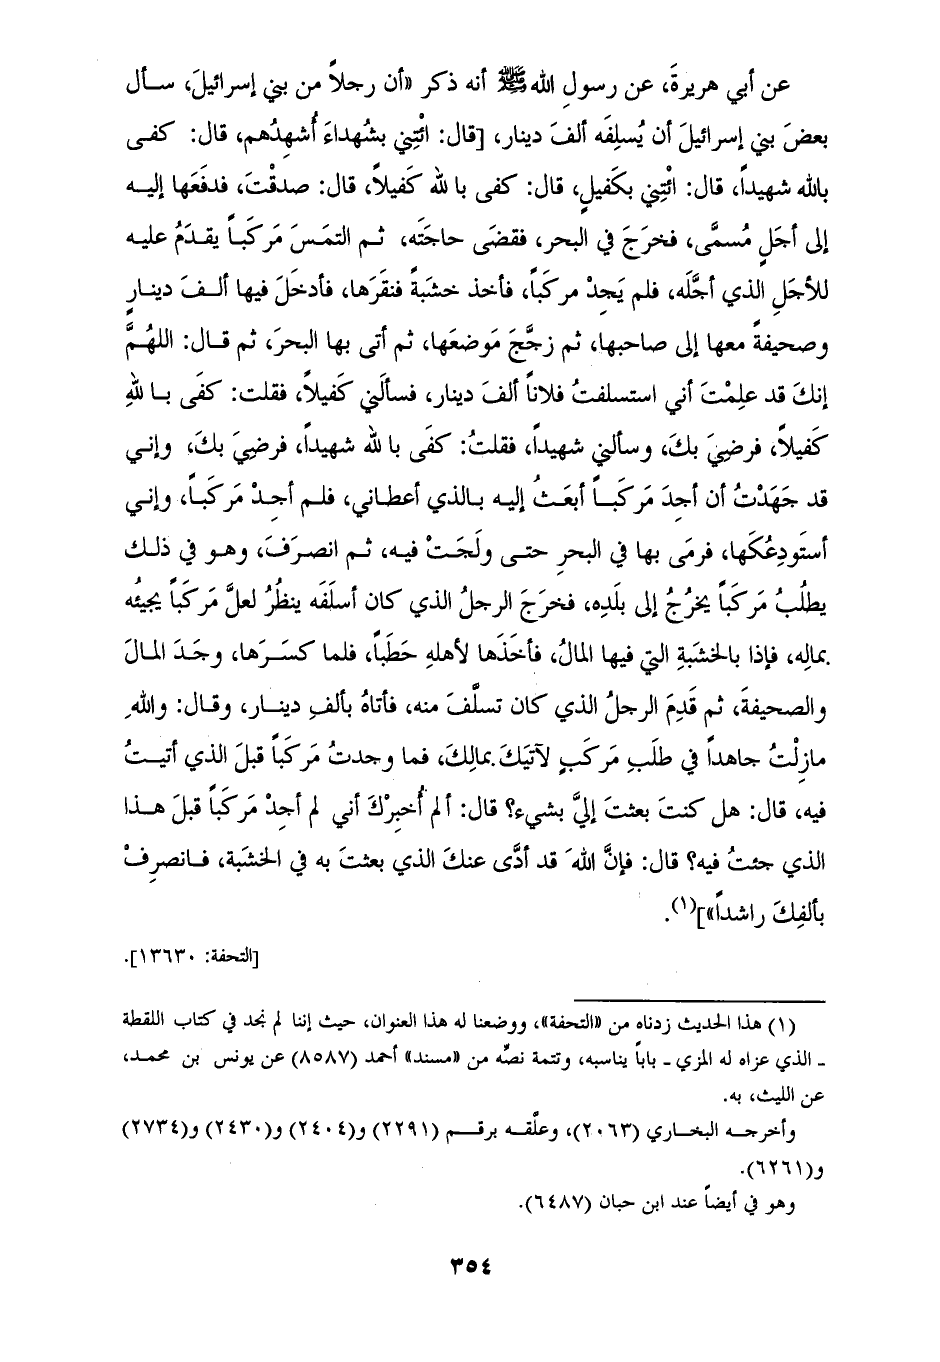 عن أبي هريرةَ، عن رسولِ اللهﷺ أنه ذكر «أن رجلاً من بني إسرائيلَ، سـأل
بعضَ بني إسرائيلَ أن يُسلِفَه ألفَ دينار، [قال: ائْتِني بشُهداءَ أُشهِدُهم، قال: كفـى
بالله شهيداً، قال: ائْتِني بكَفيلٍ، قال: كفى با لله كَفيلاً، قال: صدقْتَ، فدفَعَها إليـه
إلى أجَلٍ مُسمَّى، فخرَجَ في البحر، فقضَى حاجتَه، ثـم التمَسَ مَركَبـاً يقدَمُ عليه
للأجَلِ الذي أجَّلَه، فلم يَجِدْ مركَباً، فأخذ خشَبةً فنقَرَها، فأدخَلَ فيها ألـفَ دينـارٍ
وصحيفةً معها إلى صاحبِها، ثم زجَّجَ مَوضعَها، ثم أتى بها البحرَ، ثم قـال: اللهُمَّ
إنكَ قد علِمْتَ أني استسلفتُ فلاناً ألفَ دينار، فسألَني كَفيلاً، فقلت: كفَى بـا للهِ
كَفيلاً، فرضِيَ بكَ، وسألني شهيداً، فقلتُ: كفَى با لله شهيداً، فرضِيَ بكَ، وإنـي
قد جَهَدْتُ أن أجِدَ مَركَبـاً أبعَـثُ إليه بـالذي أعطـاني، فلـم أجِـدْ مَركَبـاً، وإنـي
أستَودِعُكَها، فرمَى بها في البحرِ حتـى ولَجَـتْ فيـه، ثـم انصرَفَ، وهـو في ذلـك
يطلُبُ مَركَباً يخرُجُ إلى بلَدِه، فخرَجَ الرجلُ الذي كان أسلَفَه ينظُرُ لعلَّ مَركَباً يجيئُه
بمالِه، فإذا بالخشَبةِ التي فيها المالُ، فأخَذَها لأهلهِ حطَباً، فلما كسَـرَها، وجَـدَ المـالَ
والصحيفةَ، ثم قَدِمَ الرجلُ الذي كان تسلَّفَ منه، فأتاهُ بألفِ دينـارٍ، وقـال: واللهِ
مازِلْتُ جاهداً في طلَبِ مَركَبٍ لآتيَكَ بمالِكَ، فما وجدتُ مَركَباً قبلَ الذي أتيـتُ
فيه، قال: هل كنتَ بعثتَ إليَّ بشيء؟ قال: ألم أُخبِرْكَ أني لم أجِدْ مَركَباً قبلَ هـذا
الذي جئتُ فيه؟ قال: فإنَّ اللهَ قد أدَّى عنكَ الذي بعثتَ به في الخشَبة، فـانصرِفْ
بألفِكَ راشداً»](١).
[التحفة: ١٣٦٣٠].
(١) هذا الحديث زدناه من «التحفة»، ووضعنا له هذا العنوان، حيث إننا لم نجد في كتاب اللقطة
ـ الذي عزاه له المزي ـ باباً يناسبه، وتتمة نصِّه من «مسند» أحمد (٨٥٨٧) عن يونس بن محمـد،
عن الليث، به.
وأخرجـه البخـاري (٢٠٦٣)، وعلَّقـه برقـم (٢٢٩١) و(٢٤٠٤) و(٢٤٣٠) و(٢٧٣٤)
و(٦٢٦١).
وهو في أيضاً عند ابن حبان (٦٤٨٧).
٣٥٤